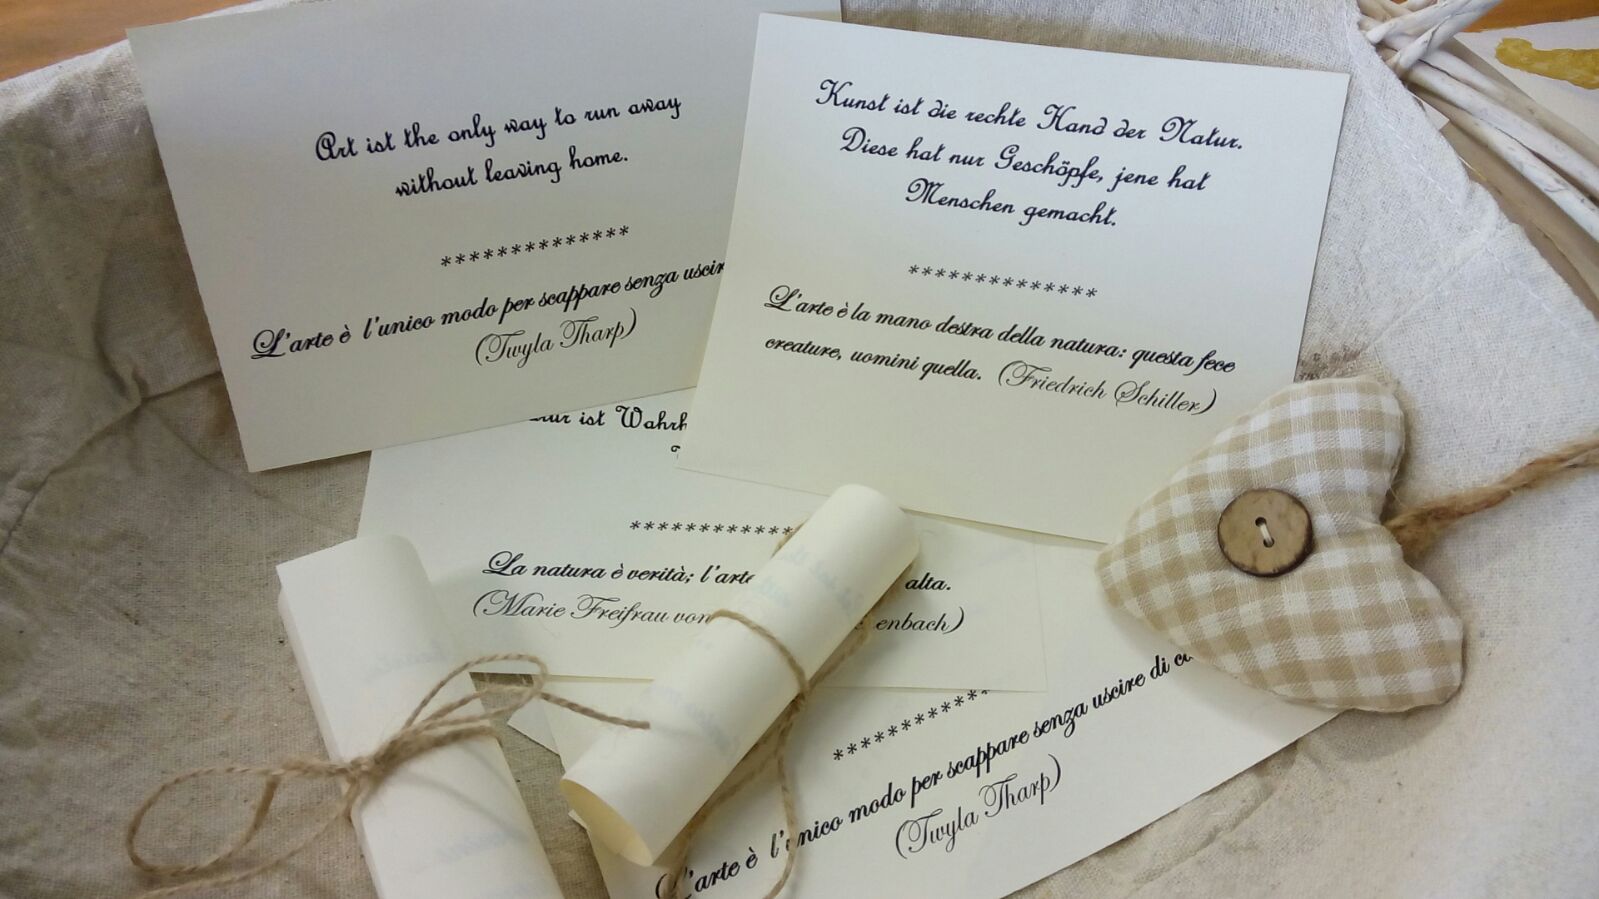 Art ist the only way to run away
without leaving home.
**************
L'arte è l'unico modo per scappare senza uscir
(Twyla Tharp)
Kunst ist die rechte Hand der Natur.
Diese hat nur Geschöpfe, jene hat
Menschen gemacht.
**************
L'arte è la mano destra della natura: questa fece
creature, uomini quella. (Friedrich Schiller)
ist Wahrh
************
La natura è verità; l'arte alta.
(Marie Freifrau von enbach)
************
L'arte è l'unico modo per scappare senza uscire di
(Twyla Tharp)